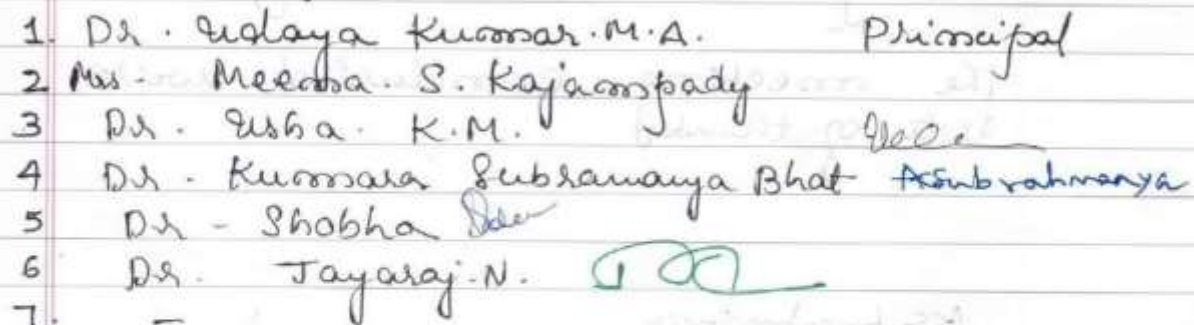 1. Dr. Udaya Kumar. M.A. Principal
2 Mrs. Meena. S. Kajampady
3 Dr. Usha. K.M.
4 Dr. Kumara Subramanya Bhat Asubrahmanya
5 Dr - Shobha
6 Dr. Jayaraj. N.
7.